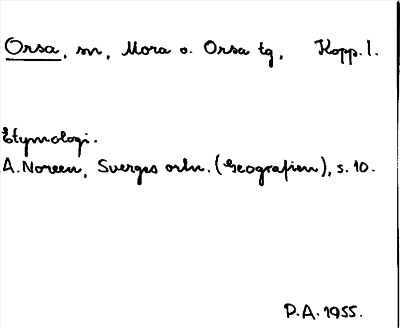 Orsa, sn, Mora o. Orsa tg, Kopp. l.
Etymologi.
A. Noreen, Sverges ortn. (Geografien), s. 10.
P.A. 1955.